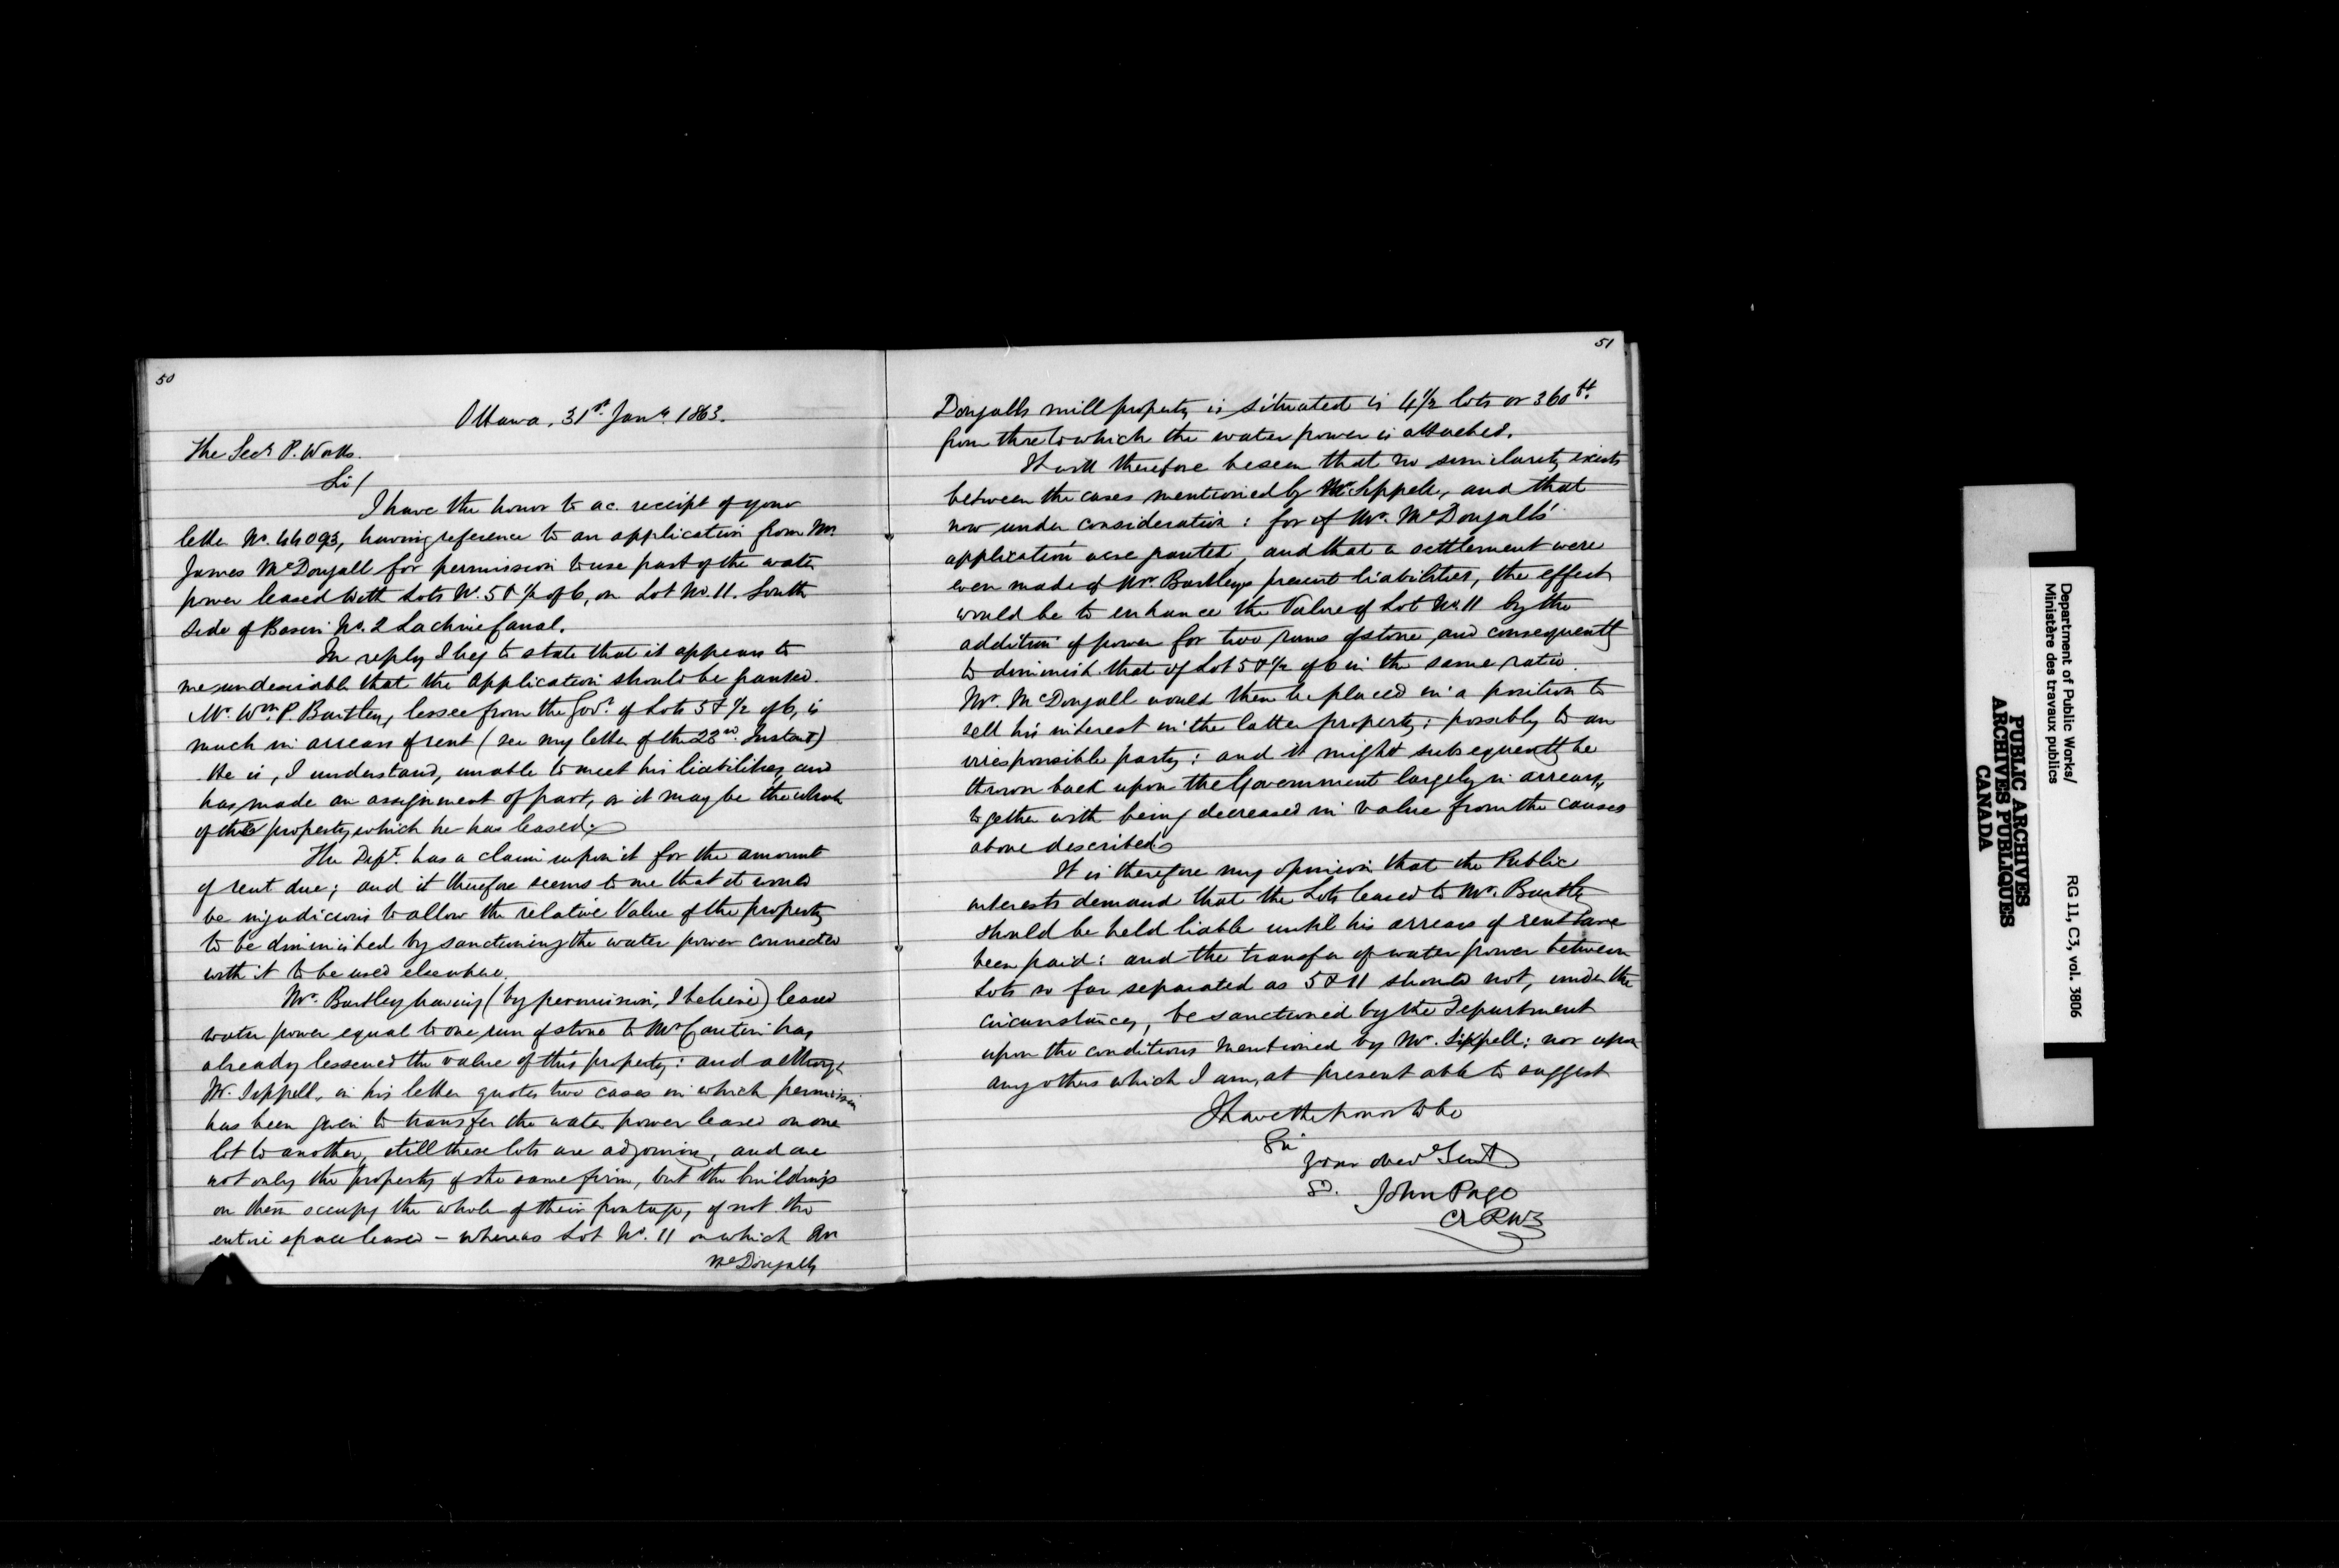 50
Ottawa, 31st Jany 1863.
The Secy P. Works.
Sir/
I have the honor to ac. receipt of your
letter No. 44093, having reference to an application from Mr.
James McDougall for permission to use part of the water
power leased with Lots N. 5 & ½ of 6, on Lot No. 11. South
side of Basin No. 2 Lachine Canal.
In reply I beg to state that it appears to
me undesirable that the application should be granted.
Mr. Wm. P. Bartley, lessee from the Govt. of Lots 5 & ½ of 6, is
much in arrears of rent (see my letter of the 28th Instant)
He is, I understand, unable to meet his liabilities, and
has made an assignment of part, or it may be the whole
of the property which he has leased.
The Dept. has a claim upon it for the amount
of rent due; and it therefore seems to me that it would
be injudicious to allow the relative Value of the property
to be diminished by sanctioning the water power connected
with it to be used elsewhere.
Mr. Bartley having (by permission, I believe) leased
water power equal to one run of stone to has
already lessened the value of this property: and although
Mr. Sippell, in his letter quotes two cases in which permission
has been given to transfer the water power leased on one
lot to another, still these lots are adjoining, and are
not only the property of the same firm, but the buildings
on them occupy the whole of their frontage, if not the
entire space leased – whereas Lot No. 11 on which Mr
McDougalls
51
Dougalls mill property is situated is 4½ lots or 360 ft.
from those to which the water power is attached.
It will therefore be seen that no similarity exists
between the cases mentioned by Mr. Sippell, and that
now under consideration: for if Mr. McDougalls'
application were granted, and that a settlement were
even made of Mr. Bartleys present liabilities, the effect
would be to enhance the Value of Lot No. 11 by the
addition of power for two runs of stone, and consequently
to diminish that of Lot 5 & ½ of 6 in the same ratio.
Mr. McDougall would then be placed in a position to
sell his interest in the latter property; possibly to an
irresponsible party: and it might subsequently be
thrown back upon the Government largely in arrears,
together with being decreased in value from the causes
above described
It is therefore my opinion that the Public
interests demand that the Lots leased to Mr. Bartley
should be held liable until his arrears of rent have
been paid: and the transfer of water power between
Lots so far separated as 5 & 11 should not, under the
circumstances, be sanctioned by the Department
upon the conditions mentioned by Mr. Sippell: nor upon
any others which I am, at present able to suggest
I have the honor to be
Sir
Your obed Sert
SD. John Page
C E P W
Department of Public Works/
Ministère des travaux publics
RG 11, C3, vol. 3806
PUBLIC ARCHIVES
ARCHIVES PUBLIQUES
CANADA